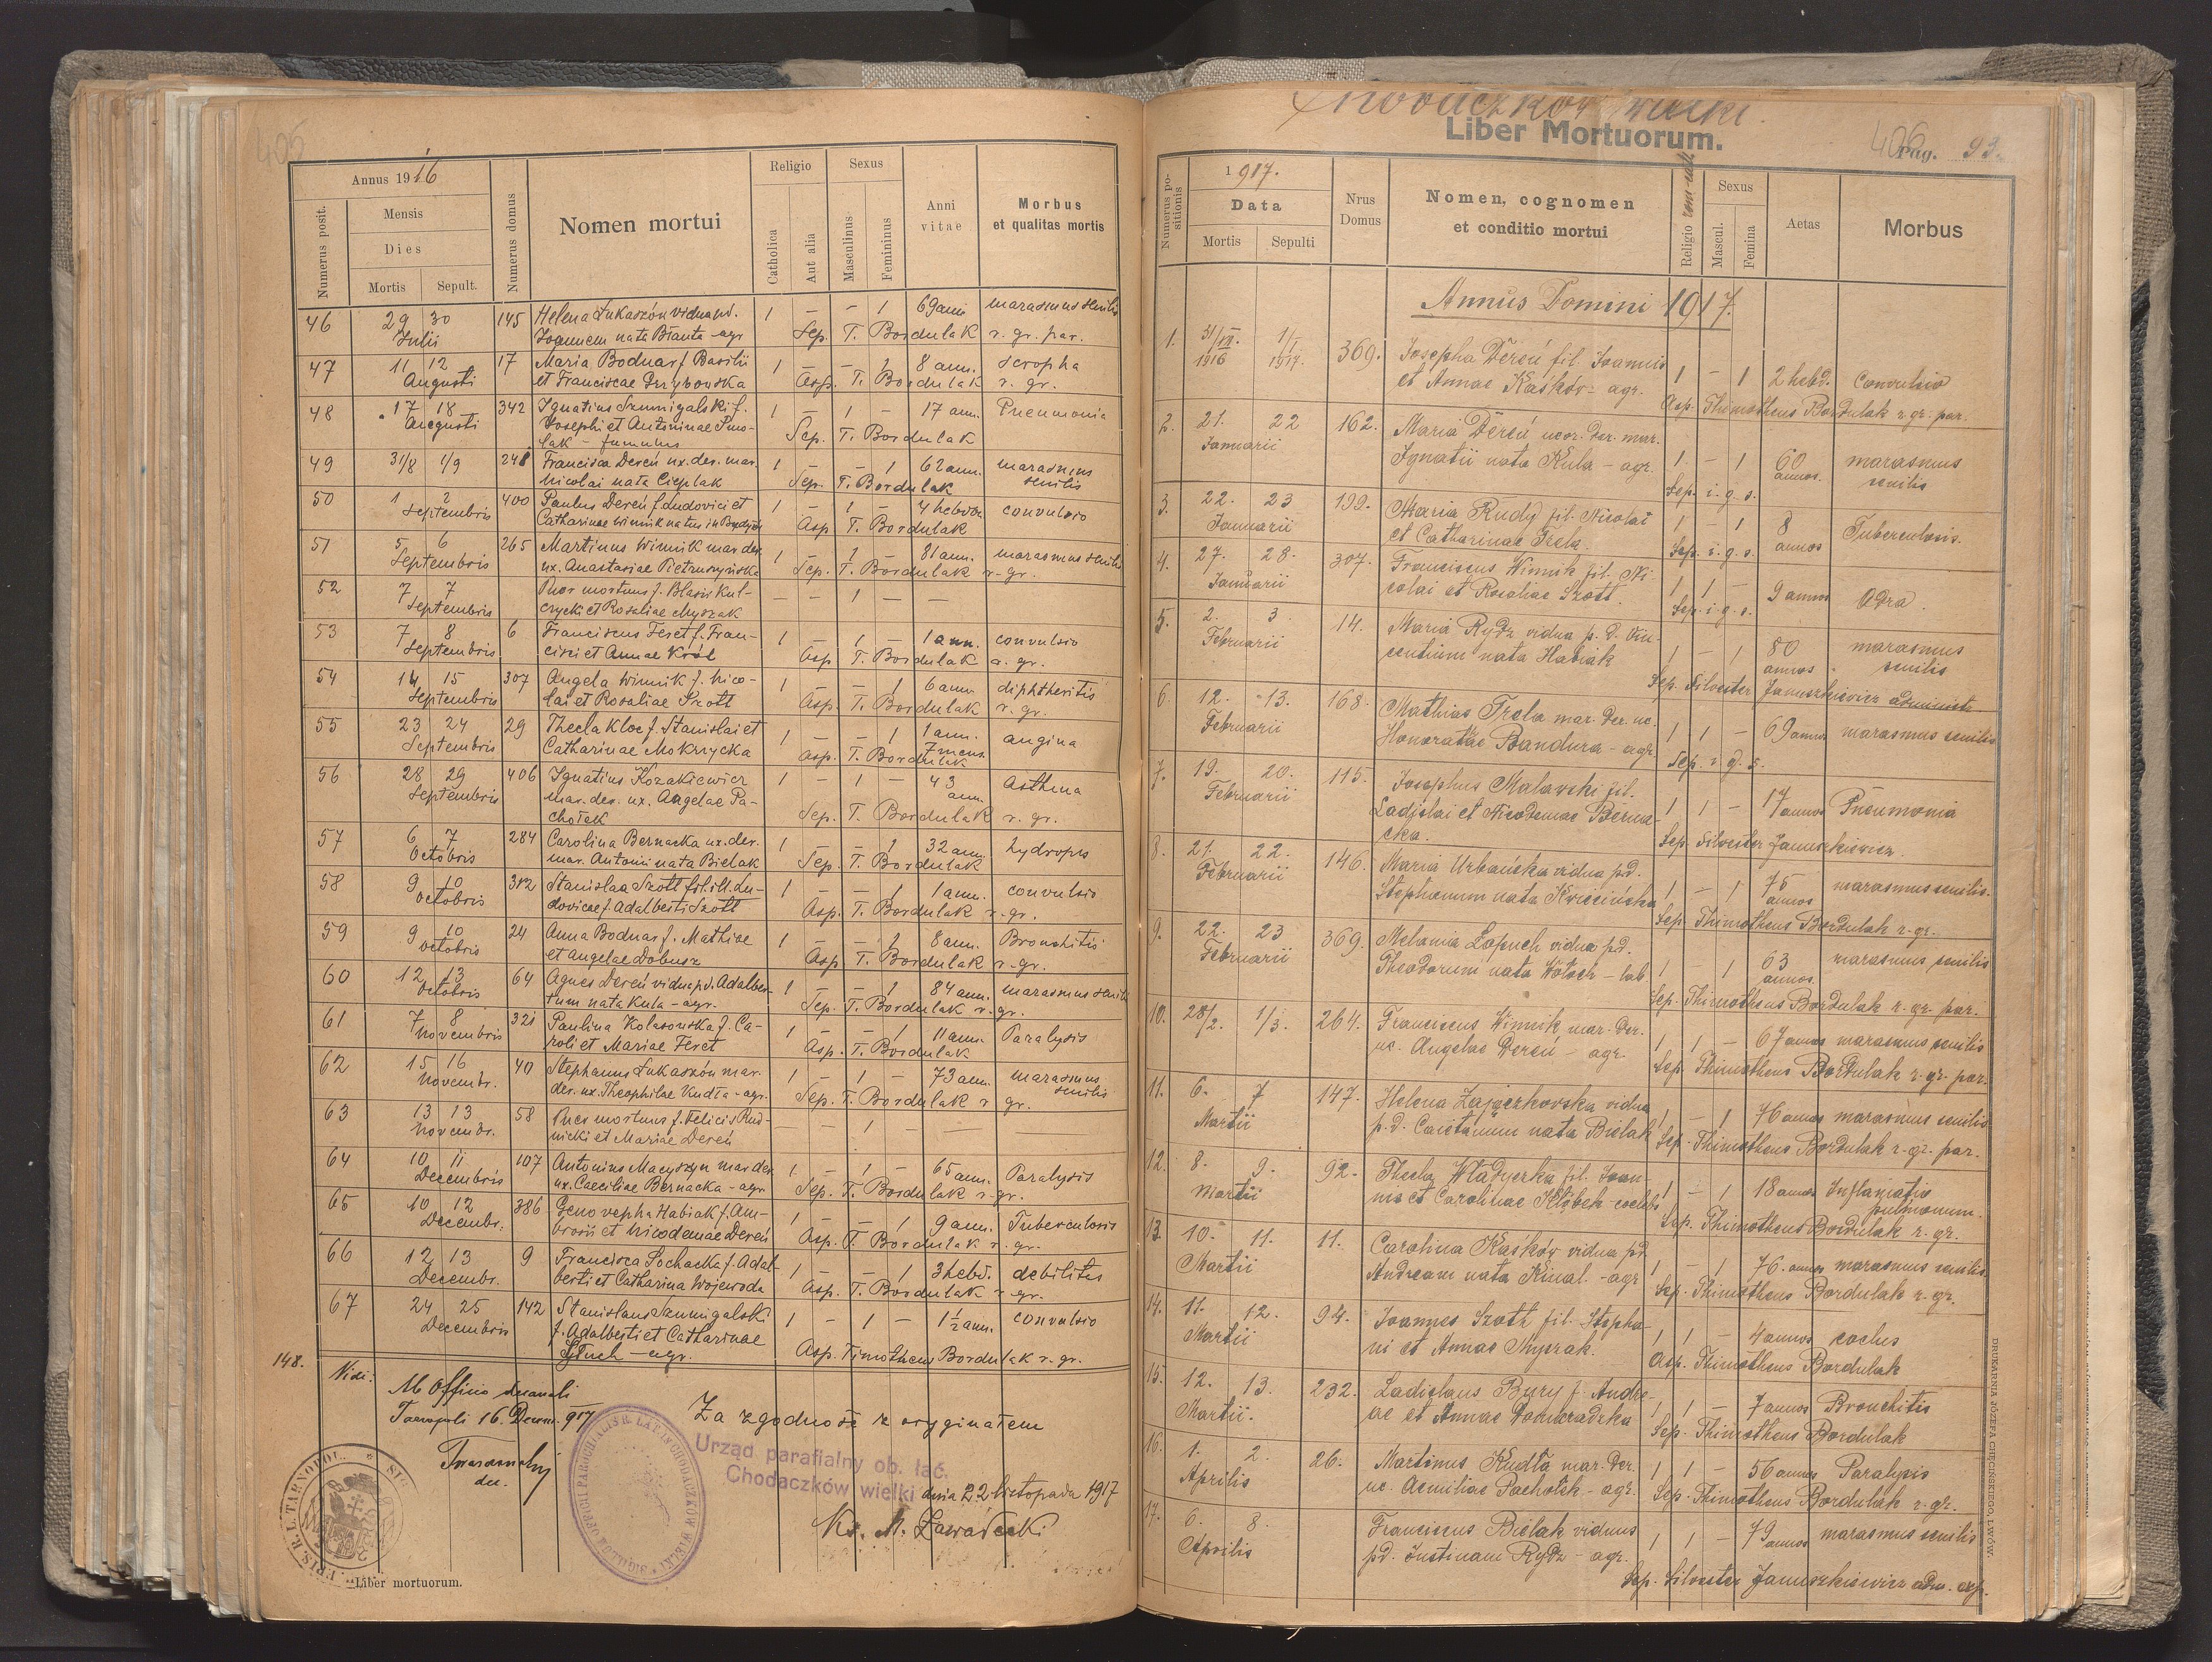 405
Annus 1916
Numerus posit.
Mensis
Dies
Mortis
Sepult.
Numerus domus
Nomen mortui
Religio
Catholica
Aut alia
Sexus
Masculinus
Femininus
Anni vitae
Morbus
et qualitas mortis
46 29 30 145 Helena Łukaszów vidua p.d. 1 – – 1 69 ann marasmus senilis
Julii Joannem nata Bianta – agr Sep. T. Bordulak r. gr. par.
47 11 12 17 Maria Bodnar f. Basilii 1 – – 1 8 ann. scropha
Augusti et Franciscae Grzybowska Asp. T. Bordulak r. gr.
48 17 18 342 Ignatius Szmigalski f. 1 – 1 – 17 ann. Pneumonia
Augusti Josephi et Antoninae Smo-
lak – famulus Sep. T. Bordulak
49 31/8 1/9 248 Francisca Dereń ux. der. mar. 1 – – 1 62 ann. marasmus
Nicolai nata Cieplak Sep. T. Bordulak senilis
50 1 2 400 Paulus Dereń f. Ludovici et 1 – 1 – 4 hebdom convulsio
Septembris Catharinae Winnik natus in Asp T. Bordulak
51 5 6 265 Martinus Winnik mar. der. 1 – 1 – 81 ann. marasmus senilis
Septembris ux. Anastasiae Pietruszyńska Sep. T. Bordulak r. gr.
52 7 7 Puer mortuus f. Blasii Kul- – – 1 – –
Septembris czycki et Rosaliae Myszak
53 7 8 6 Franciscus Feret f. Fran- 1 – 1 – 1 ann. convulsio
Septembris cisci et Annae Król Asp T. Bordulak r. gr.
54 14 15 307 Angela Winnik f. Nico- 1 – – 1 6 ann. diphtheritis
Septembris lai et Rosaliae Szott Asp. T. Bordulak r. gr.
55 23 24 29 Thecla Kloc f. Stanislai et 1 – – 1 1 ann. angina
Septembris Catharinae Mokrzycka Asp. T. Bordulak 7 mens.
56 28 29 406 Ignatius Kozakiewicz 1 – 1 – 43 Asthma
Septembris mar. der. ux. Angelae Pa- ann.
chołek Sep. T. Bordulak r. gr.
57 6 7 284 Carolina Bernacka ux. der. 1 – – 1 32 ann. hydrops
Octobris mar. Antonii nata Bielak Sep. T. Bordulak
58 9 10 312 Stanislaa Szott fil. ill. Lu- 1 – – 1 1 ann. convulsio
Octobris dovicae f. Adalberti Szott Asp. T. Bordulak r. gr.
59 9 10 24 Anna Bodnar f. Mathiae 1 – – 1 8 ann. Bronchitis
Octobris et Angelae Dobusz Asp T. Bordulak r. gr.
60 12 13 64 Agnes Dereń vidua p.d. Adalber- 1 – – 1 84 ann. marasmus senilis
Octobris tum nata Kula – agr. Sep. T. Bordulak r. gr.
61 7 8 321 Paulina Kolasowska f. Ca- 1 – – 1 11 ann. Paralysis
Novembris roli et Mariae Feret Asp. T. Bordulak
62 15 16 40 Stephanus Łukaszów mar. 1 – 1 – 73 ann. marasmus
Novembr. der. ux. Theophilae Kudła – agr. Sep. T. Bordulak r. gr. senilis
63 13 13 58 Puer mortuus f. Felicis Rud- – – 1 – –
Novembr. nicki et Mariae Dereń
64 10 11 107 Antonius Macyszyn mar. der. 1 – 1 – 65 ann. Paralysis
Decembris ux. Caeciliae Bernacka – agr Sep. T. Bordulak r. gr.
65 10 12 386 Genovepha Habiak f. Am- 1 – – 1 9 ann. Tuberculosis
Decembr. brosii et Nicodemae Dereń Asp. T. Bordulak r. gr.
66 12 13 9 Francisca Sochacka f. Adal- 1 – – 1 3 hebd. debilitas
Decembr. berti et Catharina Wojewoda Asp. T. Bordulak r. gr.
67 24 25 142 Stanislaus Szmigalski 1 – 1 – 1 1/2 ann. convulsio
Decembris f. Adalberti et Catharinae
– agr. Asp. Timotheus Bordulak r. gr.
148.
Vidi:
Ab Officio decanali
Tarnopoli 16. Decem. 917
dec.
Za zgodność z oryginałem
Urząd parafialny ob. łać.
Chodaczków wielki dnia 22 listopada 1917
Ks. M. Zawadecki
Liber mortuorum.
Chodaczków wielki
Liber Mortuorum.
406 Pag. 93.
Numerus positionis
1917.
Data
Mortis
Sepulti
Nrus Domus
Nomen, cognomen
et conditio mortui
Religio
Sexus
Mascul.
Femina
Aetas
Morbus
Annus Domini 1917.
1. 31/XII. 1916 1/I 1917 369. Josepha Dereń fil. Joannis
et Annae Kaśków – agr. 1 – 1 2 hebd. Convulsio
Asp. Thimotheus Bordulak r. gr. par.
2. 21. 22 162. Maria Dereń uxor. der. mar.
Januarii Ignatii nata Kula – agr. 1 – 1 60 annos. marasmus senilis
Sep. i. g. s.
3. 22. 23 199. Maria Rudy fil. Nicolai
Januarii et Catharinae Trela. 1 – 1 8 annos Tuberculosis.
Sep. i. g. s.
4. 27. 28. 307. Franciscus Winnik fil. Ni-
Januarii colai et Rosaliae Szott. 1 1 – 9 annos Odra.
Sep. i. g. s.
5. 2. 3 14. Maria Rydz vidua p. d. Vin-
Februarii centium nata Habiak 1 – 1 80 annos marasmus senilis
Sep. Silvester Januszkiewicz administr.
6. 12. 13. 168. Mathias Trela mar. der. ux.
Februarii Honoratae Bandura – agr. 1 1 – 69 annos marasmus senilis
Sep. i. g. s.
7. 19. 20. 115. Josephus Malawski fil.
Februarii Ladislai et Nicodemae Berna- 1 1 – 17 annos Pneumonia
cka. Sep. Silvester Januszkiewicz.
8. 21. 22. 146. Maria Urbańska vidua p.d.
Februarii Stephanum nata Kwiecińska 1 – 1 75 annos marasmus senilis.
Sep. Thimotheus Bordulak r. gr.
9. 22. 23 369. Melania Łopuch vidua p.d.
Februarii Theodorum nata Wołoch – lab 1 – 1 63 annos. marasmus senilis
Sep. Thimotheus Bordulak r. gr. par.
10. 28/2. 1/3. 264. Franciscus Winnik mar. der.
ux. Angelae Dereń – agr. 1 1 – 67 annos marasmus senilis
Sep. Thimotheus Bordulak r. gr. par.
11. 6. 7 147. Helena Zajączkowska vidua
Martii p. d. Caietanum nata Bielak 1 – 1 76 annos marasmus senilis
Sep. Thimotheus Bordulak r. gr. par.
12. 8. 9. 92. Thecla Władyczka fil. Joan-
Martii nis et Carolinae Kłębek coelebs 1 – 1 18 annos Inflamatio pulmonum.
Sep. Thimotheus Bordulak r. gr.
13. 10. 11. 11. Carolina Kaśków vidua pd.
Martii Andream nata Kinal. – agr 1 – 1 76. annos marasmus senilis.
Sep. Thimotheus Bordulak r. gr.
14. 11. 12. 94. Joannes Szott fil. Stepha-
Martii ni et Annae Myszak. 1 1 – 4 annos coclus
Asp. Thimotheus Bordulak
15. 12. 13. 232. Ladislaus Bury f. Andre-
Martii. ae et Annae Domaradzka 1 1 – 7 annos Bronchitis
Sep. Thimotheus Bordulak
16. 1. 2. 26. Martinus Kudła mar. der.
Aprilis ux. Aemiliae Pachołek – agr. 1 1 – 56 annos Paralysis
Sep. Thimotheus Bordulak r. gr.
17. 6. 8. Franciscus Bielak viduus
Aprilis pd. Justinam Rydz – agr. 1 1 – 79 annos marasmus senilis
Sep. Silvester Januszkiewicz adm. exp.
DRUKARNIA JÓZEFA CHĘCIŃSKIEGO, LWÓW.